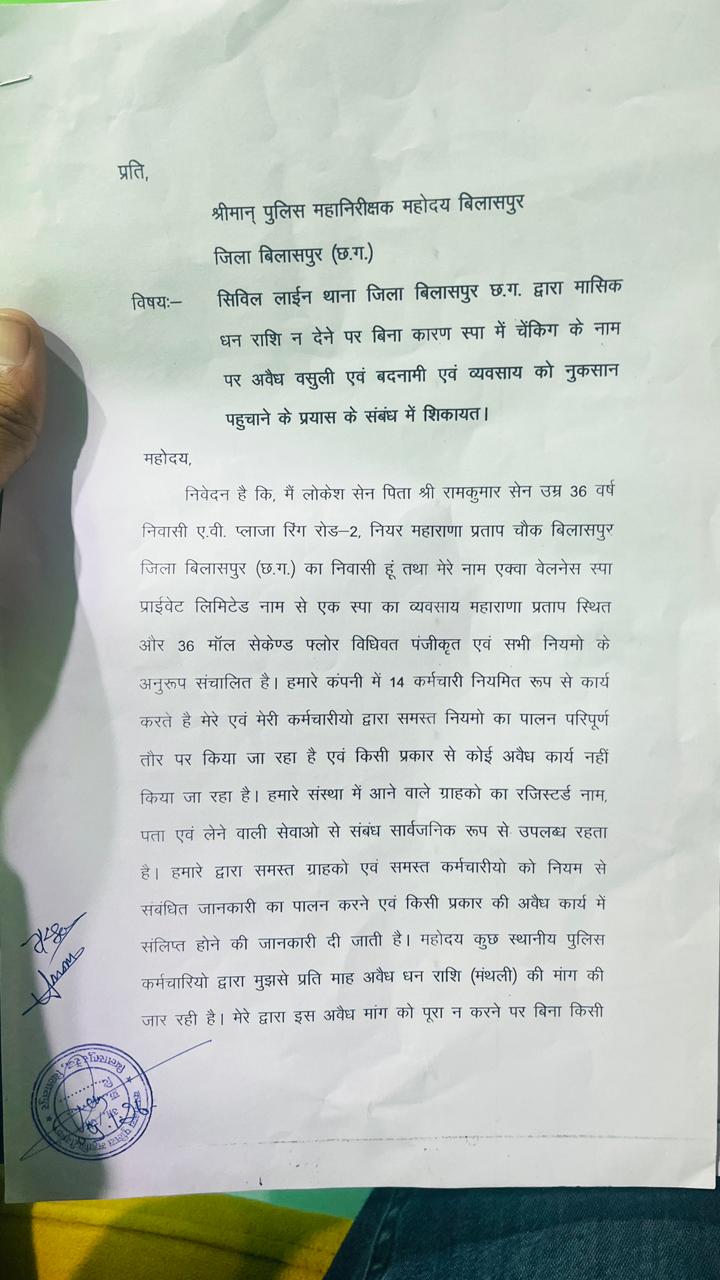 प्रति,
श्रीमान् पुलिस महानिरीक्षक महोदय बिलासपुर
जिला बिलासपुर (छ.ग.)
विषयः– सिविल लाईन थाना जिला बिलासपुर छ.ग. द्वारा मासिक
धन राशि न देने पर बिना कारण स्पा में चेंकिग के नाम
पर अवैध वसुली एवं बदनामी एवं व्यवसाय को नुकसान
पहुचाने के प्रयास के संबंध में शिकायत।
महोदय,
निवेदन है कि, मैं लोकेश सेन पिता श्री रामकुमार सेन उम्र 36 वर्ष
निवासी ए.वी. प्लाजा रिंग रोड–2, नियर महाराणा प्रताप चौक बिलासपुर
जिला बिलासपुर (छ.ग.) का निवासी हूं तथा मेरे नाम एक्वा वेलनेस स्पा
प्राईवेट लिमिटेड नाम से एक स्पा का व्यवसाय महाराणा प्रताप स्थित
और 36 मॉल सेकेण्ड फ्लोर विधिवत पंजीकृत एवं सभी नियमो के
अनुरूप संचालित है। हमारे कंपनी में 14 कर्मचारी नियमित रूप से कार्य
करते है मेरे एवं मेरी कर्मचारीयो द्वारा समस्त नियमो का पालन परिपूर्ण
तौर पर किया जा रहा है एवं किसी प्रकार से कोई अवैध कार्य नहीं
किया जा रहा है। हमारे संस्था में आने वाले ग्राहको का रजिस्टर्ड नाम,
पता एवं लेने वाली सेवाओ से संबंध सार्वजनिक रूप से उपलब्ध रहता
है। हमारे द्वारा समस्त ग्राहको एवं समस्त कर्मचारीयो को नियम से
संबंधित जानकारी का पालन करने एवं किसी प्रकार की अवैध कार्य में
संलिप्त होने की जानकारी दी जाती है। महोदय कुछ स्थानीय पुलिस
कर्मचारियो द्वारा मुझसे प्रति माह अवैध धन राशि (मंथली) की मांग की
जार रही है। मेरे द्वारा इस अवैध मांग को पूरा न करने पर बिना किसी